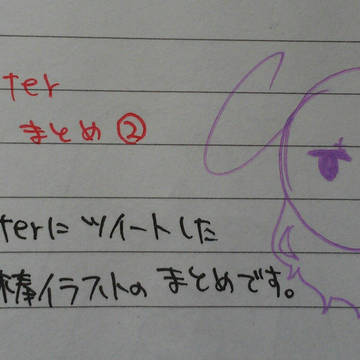 ter
まとめ②
terに ツイートした
棒イラストの まとめです。